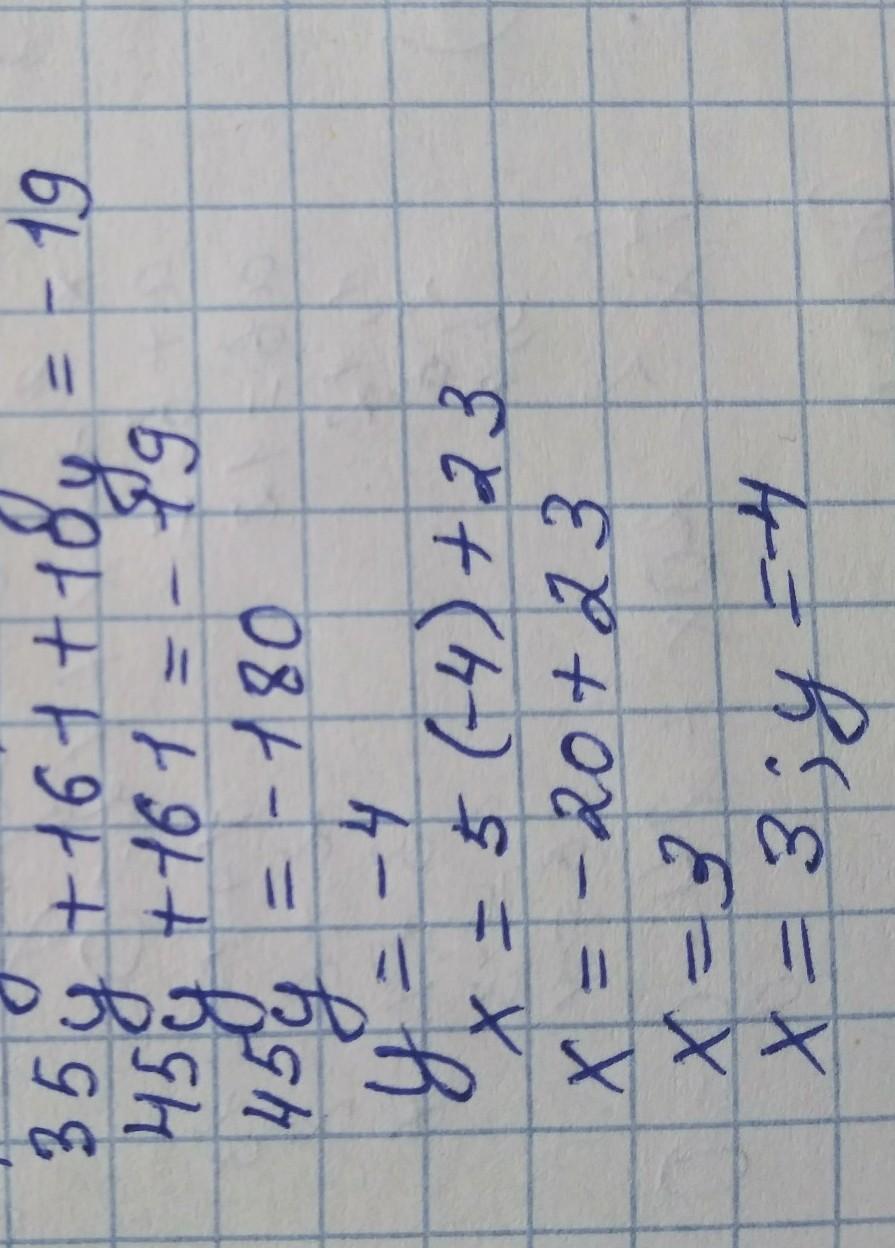 35y + 161 + 10y = - 19
45y + 161 = - 19
45y = - 180
y = - 4
x = 5 (-4) + 23
x = - 20 + 23
x = 3
x = 3 ; y = -4